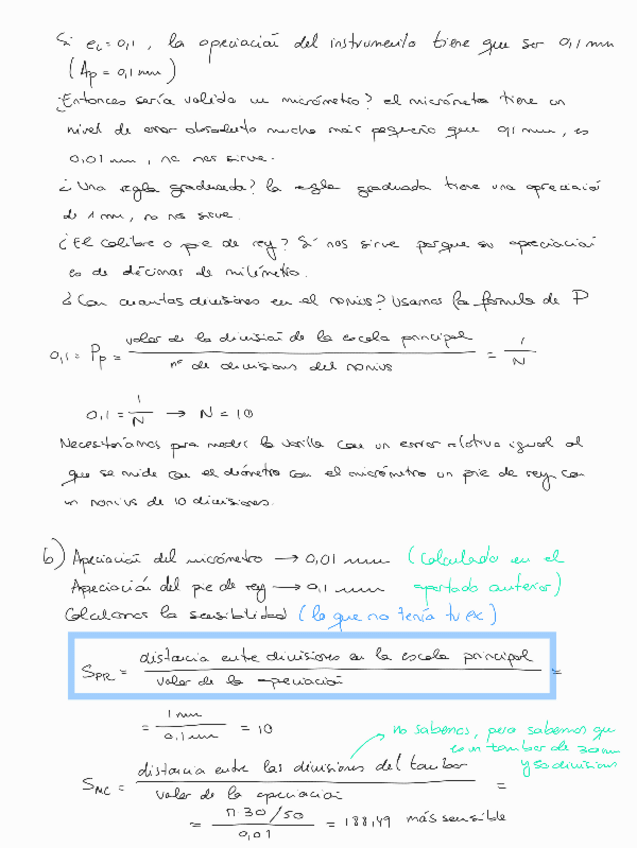 Si eL = 0,1 , la apreciación del instrumento tiene que ser 0,1 mm
(Ap = 0,1 mm)
¿Entonces sería valido un micrómetro? el micrómetro tiene un
nivel de error absoluto mucho más pequeño que 0,1 mm, es
0,01 mm, no nos sirve.
¿Una regla graduada? la regla graduada tiene una apreciación
de 1 mm, no nos sirve.
¿El calibre o pie de rey? Sí nos sirve porque su apreciación
es de décimas de milímetro.
¿Con cuantas divisiones en el nonius? Usamos la fórmula de P
0,1 = Pp = valor de la división de la escala principal / nº de divisiones del nonius = 1/N
0,1 = 1/N → N = 10
Necesitaríamos para medir la varilla con un error relativo igual al
que se mide con el diámetro con el micrómetro un pie de rey con
un nonius de 10 divisiones.
b) Apreciación del micrómetro → 0,01 mm (calculado en el
Apreciación del pie de rey → 0,1 mm apartado anterior)
Calculamos la sensibilidad (lo que no tenía tu ex)
SPR = distancia entre divisiones en la escala principal / valor de la apreciación =
= 1 mm / 0,1 mm = 10
no sabemos, pero sabemos que
es un tambor de 30mm
y 50 divisiones
SMC = distancia entre las divisiones del tambor / valor de la apreciación =
= π·30/50 / 0,01 = 188,49 más sensible